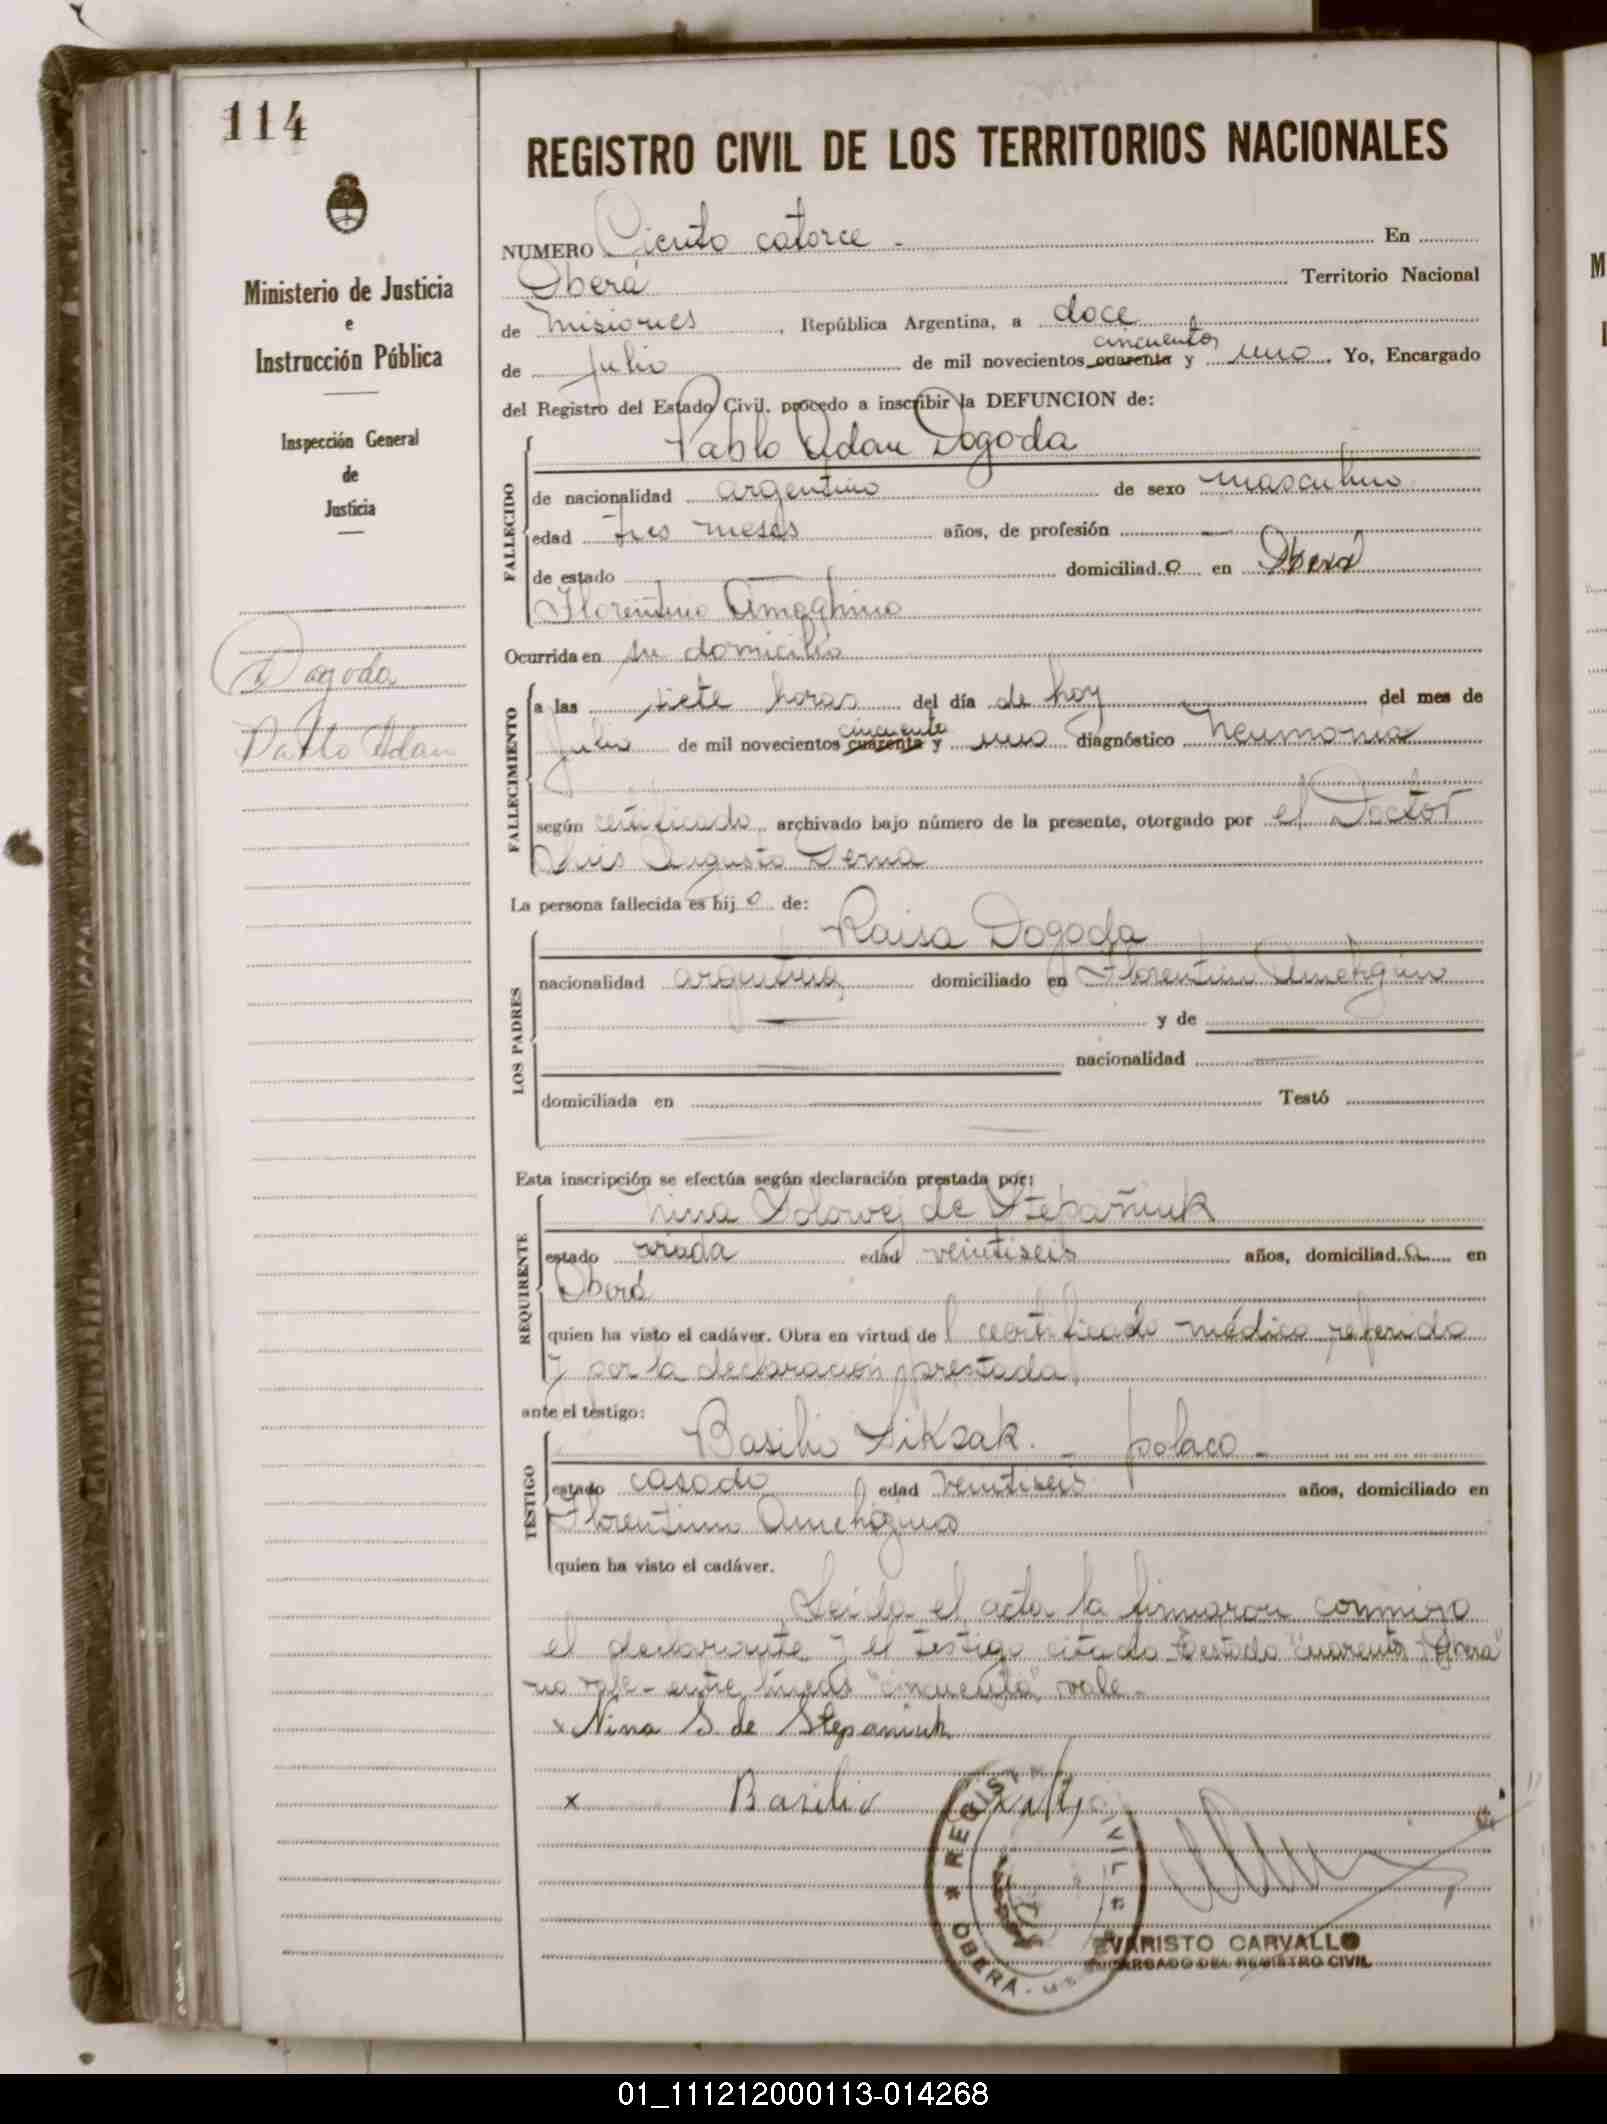 114
Ministerio de Justicia
e
Instrucción Pública
Inspección General
de
Justicia
Dogoda
Pablo Adan
REGISTRO CIVIL DE LOS TERRITORIOS NACIONALES
NUMERO Ciento catorce - En
Oberá Territorio Nacional
de Misiones, República Argentina, a doce
cincuenta
de Julio de mil novecientos cuarenta y uno. Yo, Encargado
del Registro del Estado Civil, procedo a inscribir la DEFUNCION de:
Pablo Adan Dogoda
FALLECIDO
de nacionalidad argentino de sexo masculino
edad tres meses años, de profesión —
de estado domiciliad o en Oberá
Florentino Ameghino
Ocurrida en su domicilio
FALLECIMIENTO
a las siete horas del día de hoy del mes de
cincuenta
Julio de mil novecientos cuarenta y uno diagnóstico Neumonia
según certificado, archivado bajo número de la presente, otorgado por el Doctor
Luis Augusto
La persona fallecida es hij o de:
Raisa Dogoda
LOS PADRES
nacionalidad argentina domiciliado en Florentino Ameghino
— y de
nacionalidad
domiciliada en Testó
Esta inscripción se efectúa según declaración prestada por:
Nina Solowej de Stepañiuk
REQUIRENTE
estado viuda edad veintiseis años, domiciliad a en
Oberá
quien ha visto el cadáver. Obra en virtud del certificado médico referido
y por la declaración prestada
ante el testigo:
Basilio Siksak - polaco -
TESTIGO
estado casado edad veintiseis años, domiciliado en
Florentino Ameghino
quien ha visto el cadáver.
Leída el acta la firmaron conmigo
el declarante y el testigo citado Testado "cuarenta"
no vale - entre líneas "cincuenta" vale -
x Nina S de Stepaniuk
x Basilio
REGISTRO CIVIL
OBERA
EVARISTO CARVALLO
ENCARGADO DEL REGISTRO CIVIL
01_111212000113-014268